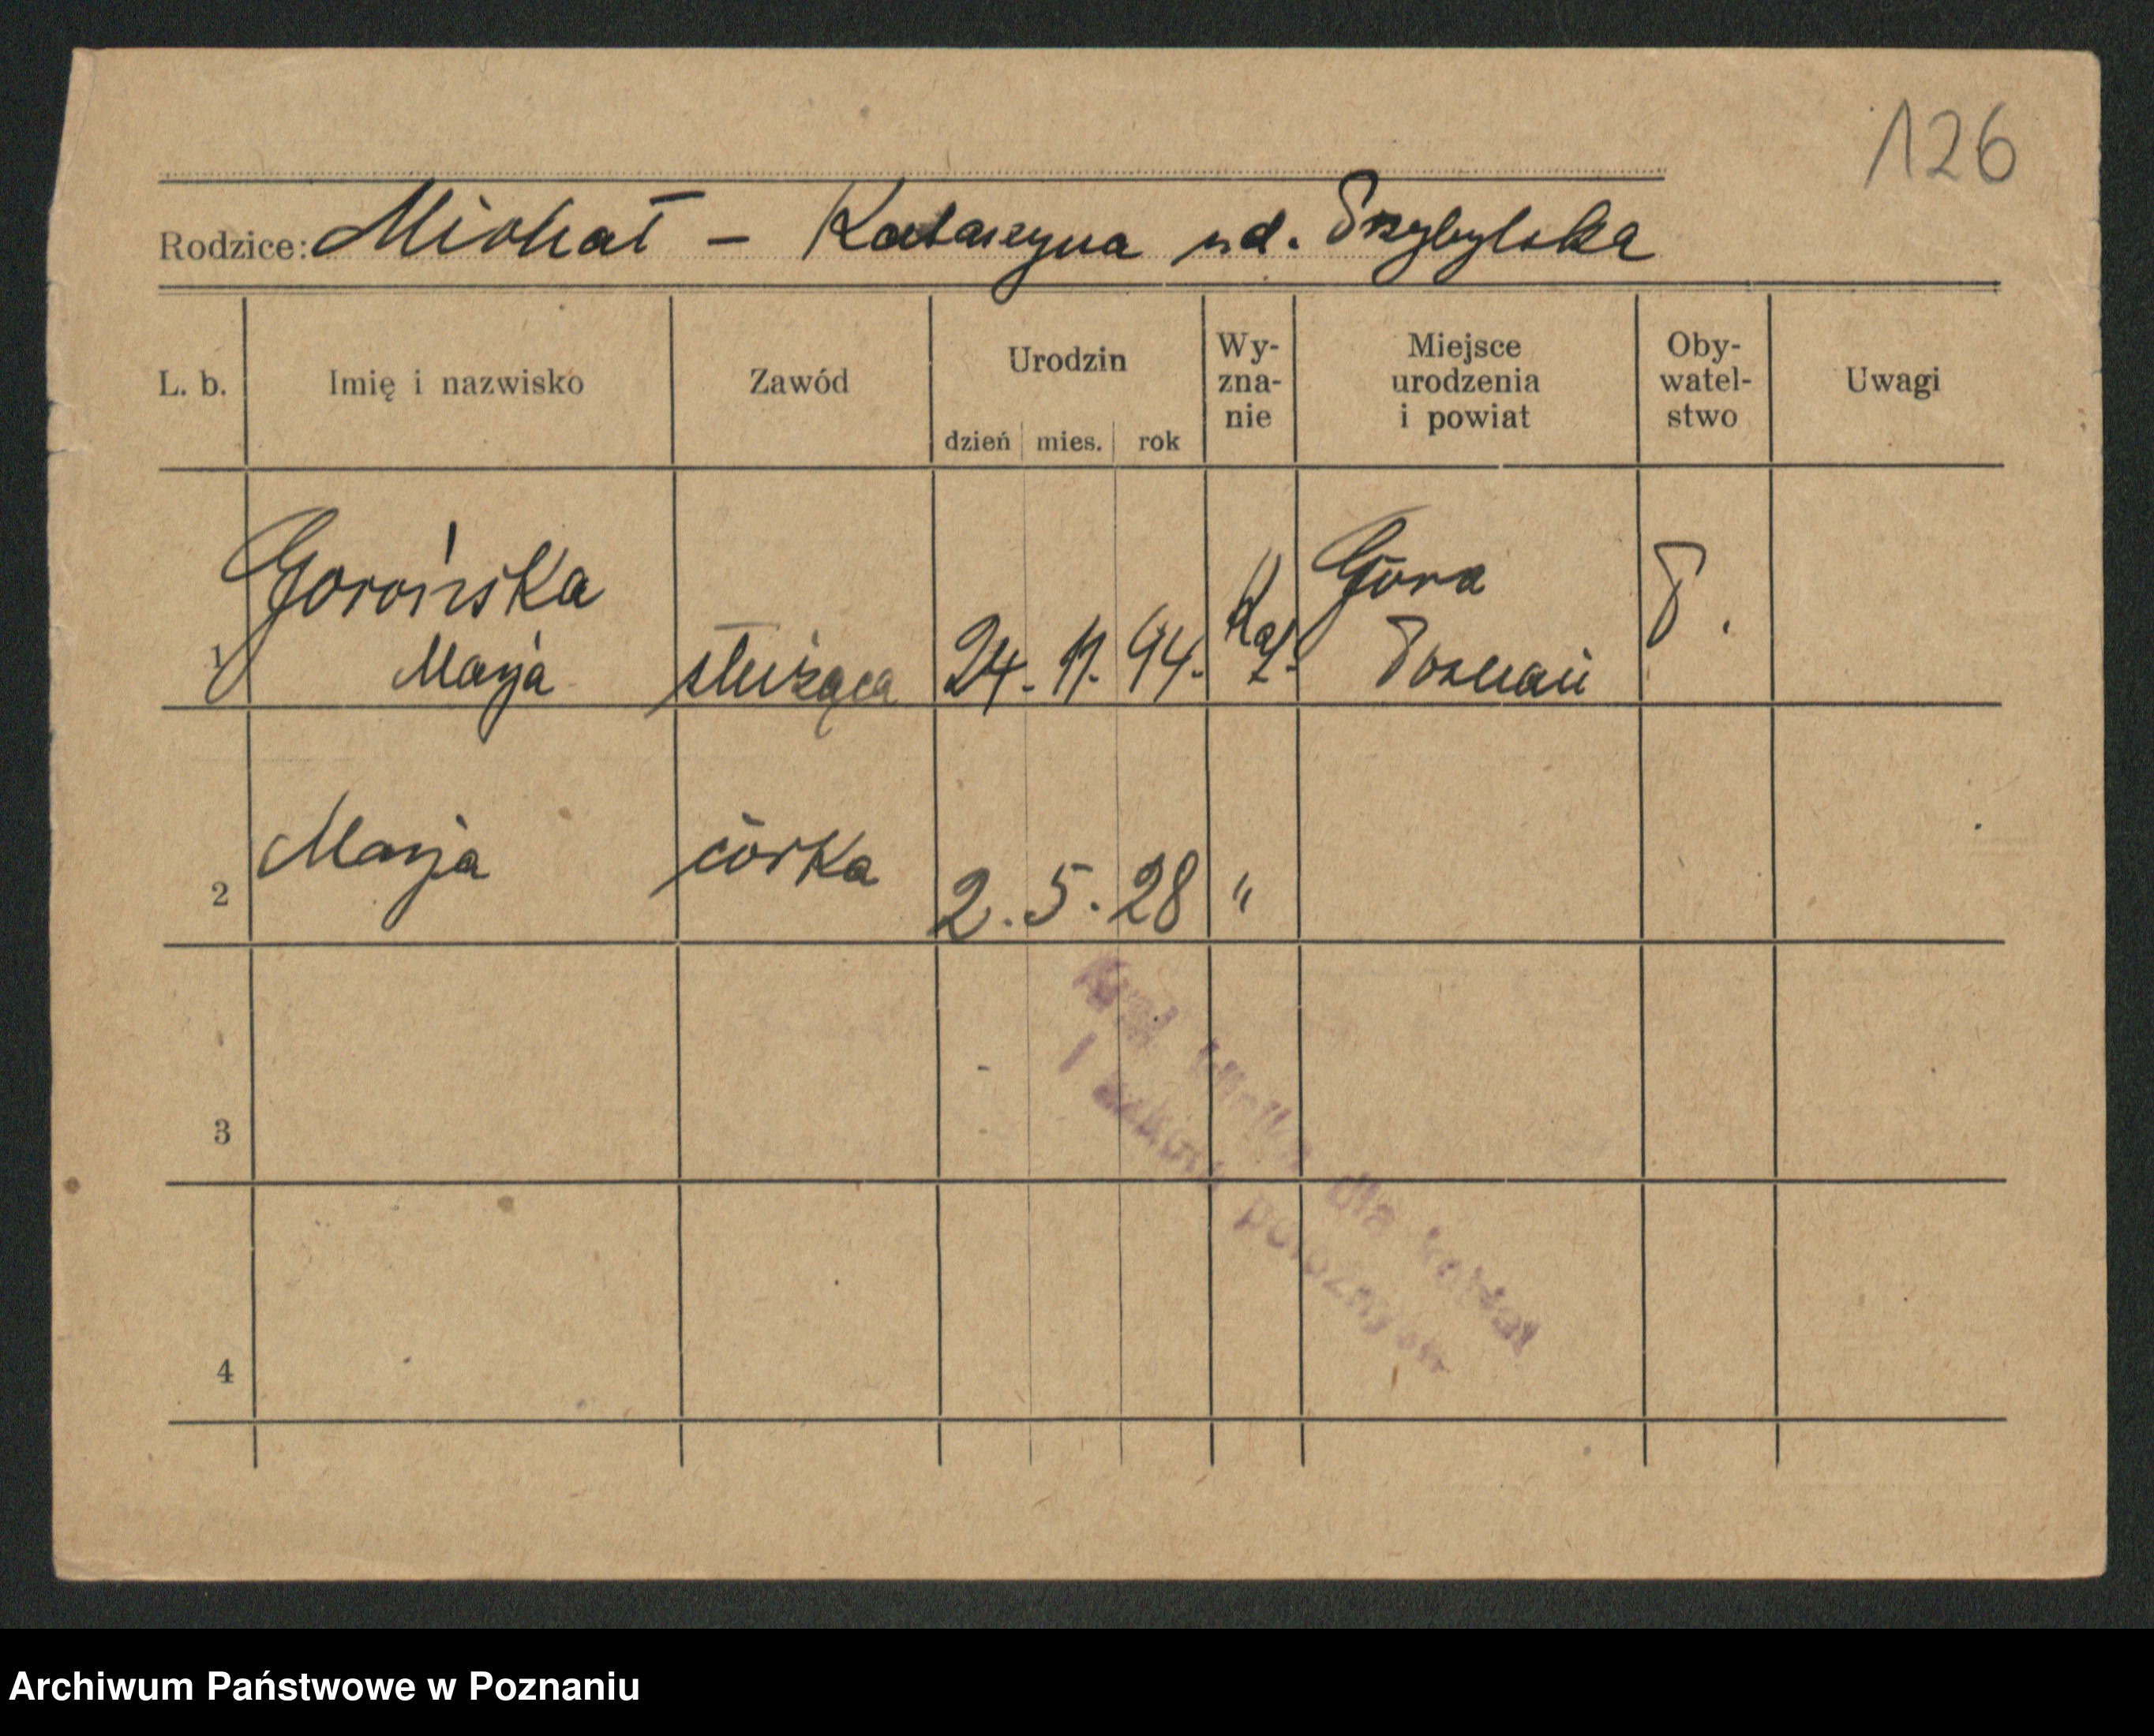 126
Rodzice: Michał – Katarzyna ud. Przybylska
L. b. Imię i nazwisko Zawód Urodzin dzień mies. rok Wy-zna-nie Miejsce urodzenia i powiat Oby-watel-stwo Uwagi
1 Gorońska Marja służąca 24. 11. 94. Kat. Góra Poznań P.
2 Marja córka 2. 5. 28 "
dla kobiet
położnych
3
4
Archiwum Państwowe w Poznaniu